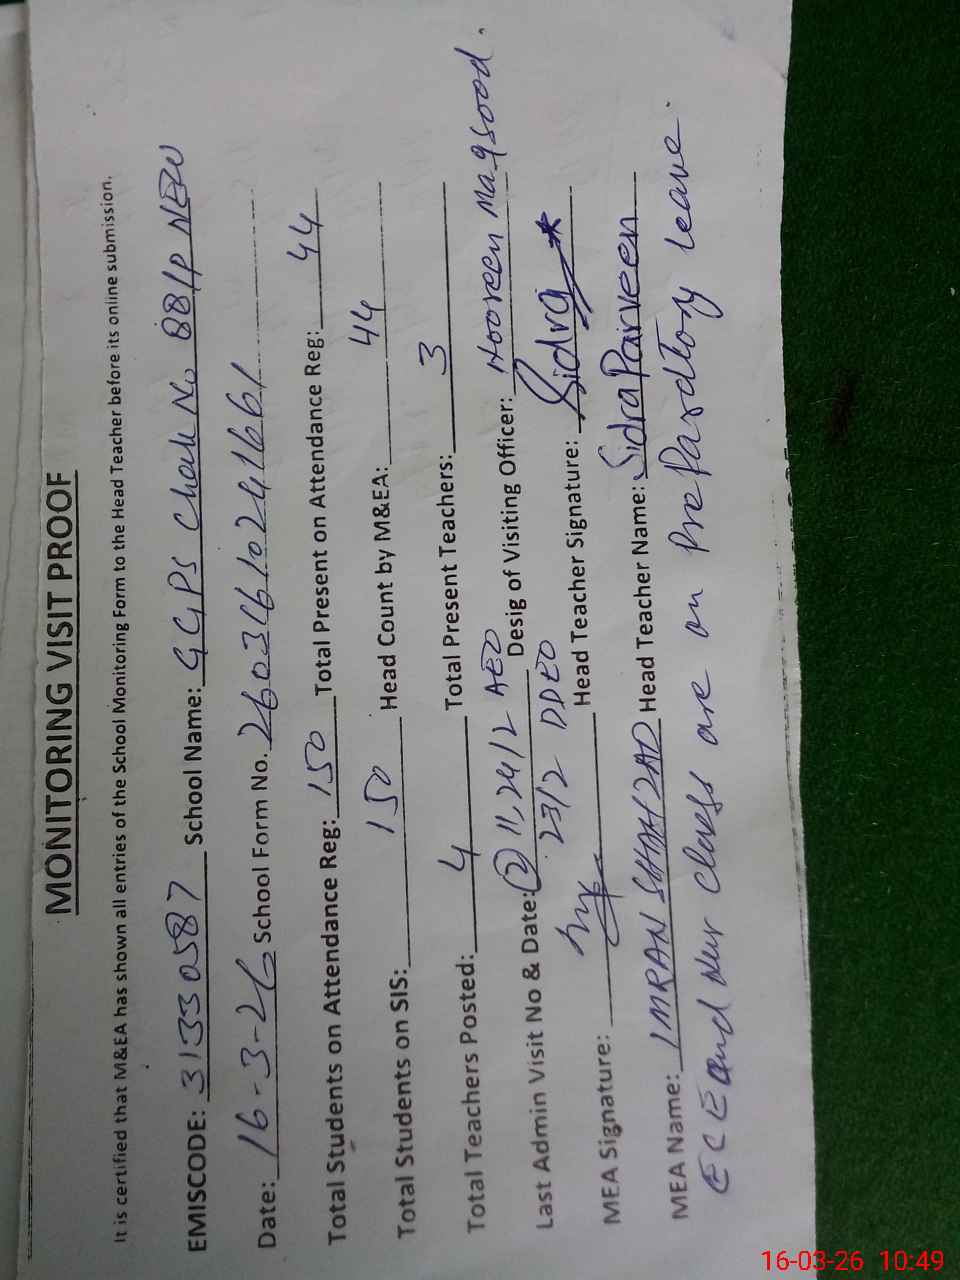 MONITORING VISIT PROOF
It is certified that M&EA has shown all entries of the School Monitoring Form to the Head Teacher before its online submission.
EMISCODE: 31330587 School Name: GGPS Chak No 88/P NEW
Date: 16-3-26 School Form No. 2603161024116661
Total Students on Attendance Reg: 150 Total Present on Attendance Reg: 44
Total Students on SIS: 150 Head Count by M&EA: 44
Total Teachers Posted: 4 Total Present Teachers: 3
Last Admin Visit No & Date: (2) 11,24/2 AEO Desig of Visiting Officer: Nooreen Maqsood.
23/2 DDEO
MEA Signature: Head Teacher Signature: Sidra
MEA Name: IMRAN SHAHZAD Head Teacher Name: Sidra Parveen
ECE and Nur classes are on prepardtory leave.
16-03-26 10:49